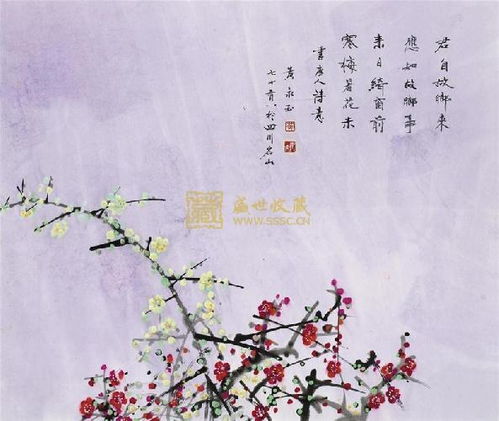 君自故鄉來
應知故鄉事
來日綺窗前
寒梅著花未
唐人詩意
黃永玉
七十 於四川名山
藏
盛世收藏
WWW.SSSC.CN